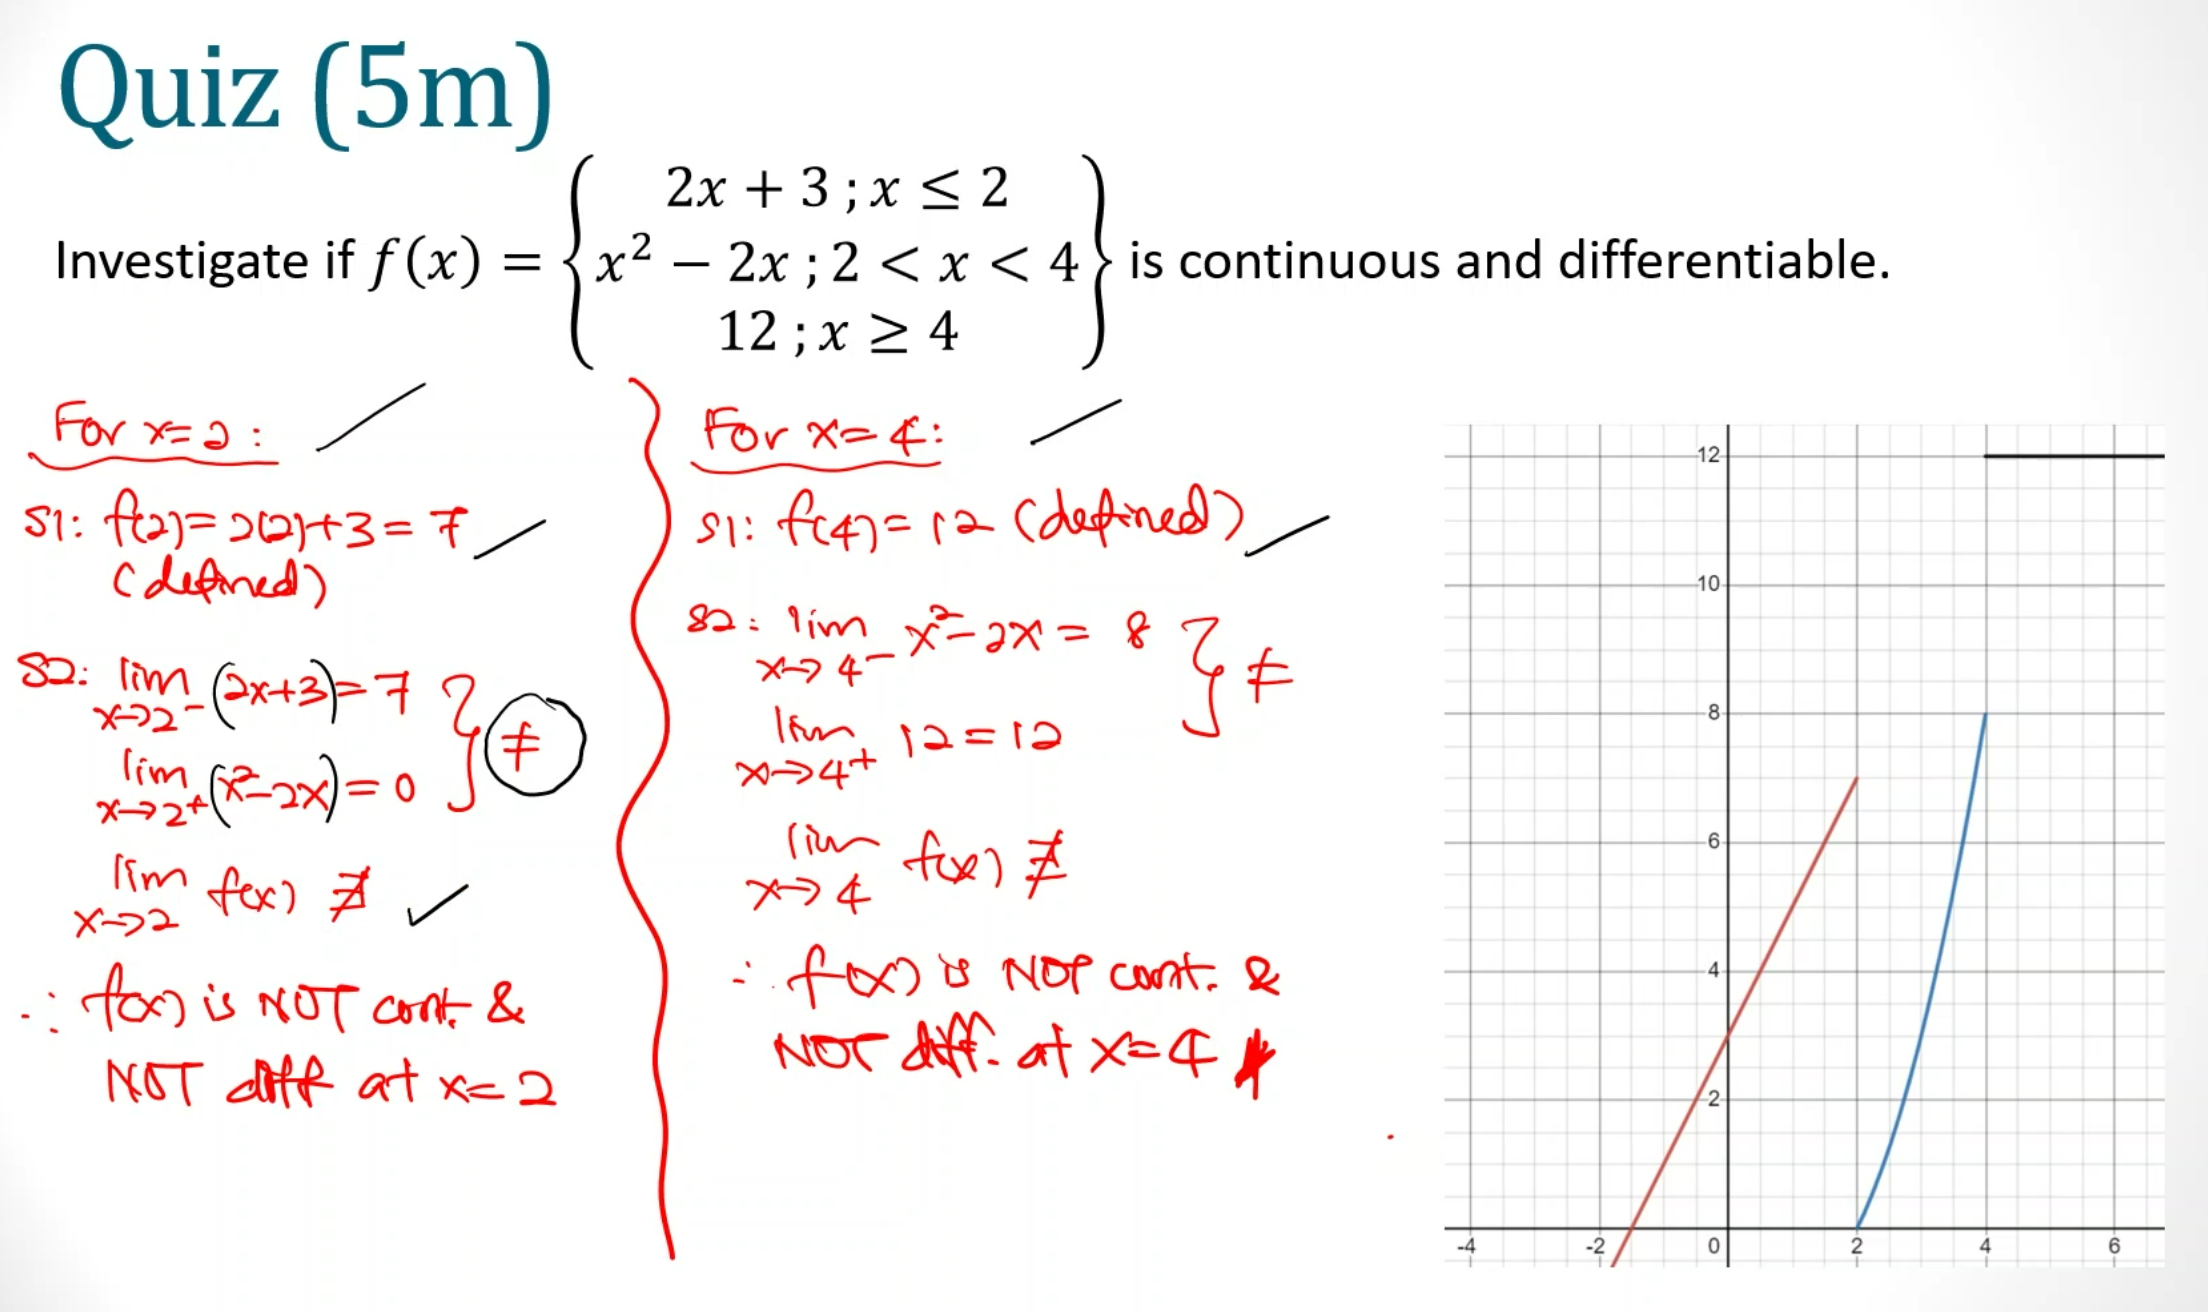 Quiz (5m)
Investigate if f(x) = { 2x + 3 ; x ≤ 2
x² − 2x ; 2 < x < 4
12 ; x ≥ 4 } is continuous and differentiable.
For x=2 :
S1: f(2) = 2(2)+3 = 7
(defined)
S2: lim x→2⁻ (2x+3) = 7 } ≠
lim x→2⁺ (x²-2x) = 0
lim x→2 f(x) ∄
∴ f(x) is NOT cont. &
NOT diff at x=2
For x=4:
S1: f(4) = 12 (defined)
S2: lim x→4⁻ x²-2x = 8 } ≠
lim x→4⁺ 12 = 12
lim x→4 f(x) ∄
∴ f(x) is NOT cont. &
NOT diff. at x=4
12
10
8
6
4
2
-4 -2 0 2 4 6